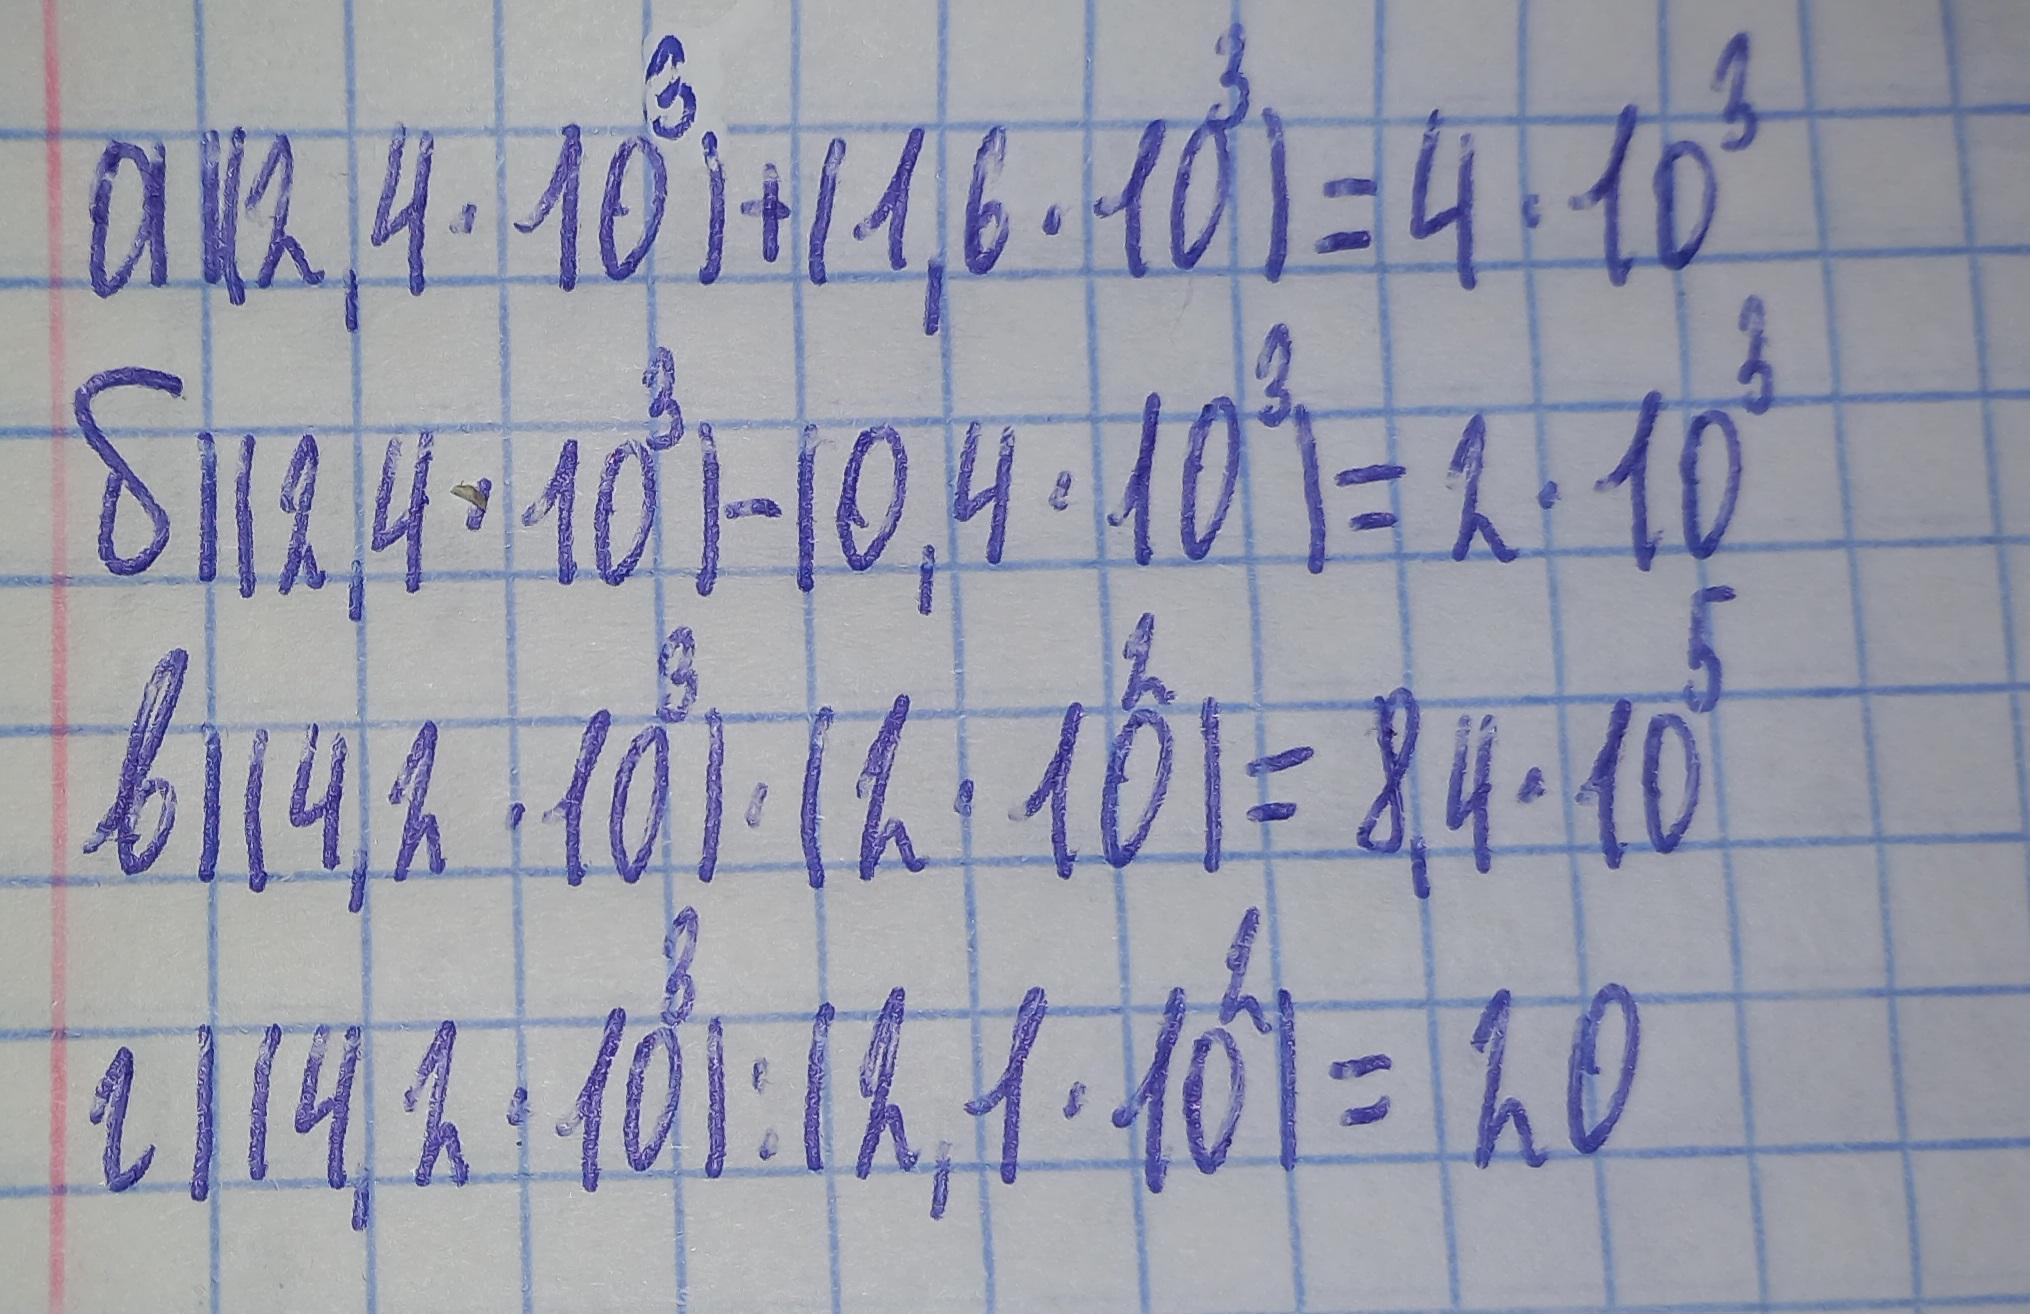 а) (2,4 · 10³) + (1,6 · 10³) = 4 · 10³
б) (2,4 · 10³) - (0,4 · 10³) = 2 · 10³
в) (4,2 · 10³) · (2 · 10²) = 8,4 · 10⁵
г) (4,2 · 10³) : (2,1 · 10²) = 20